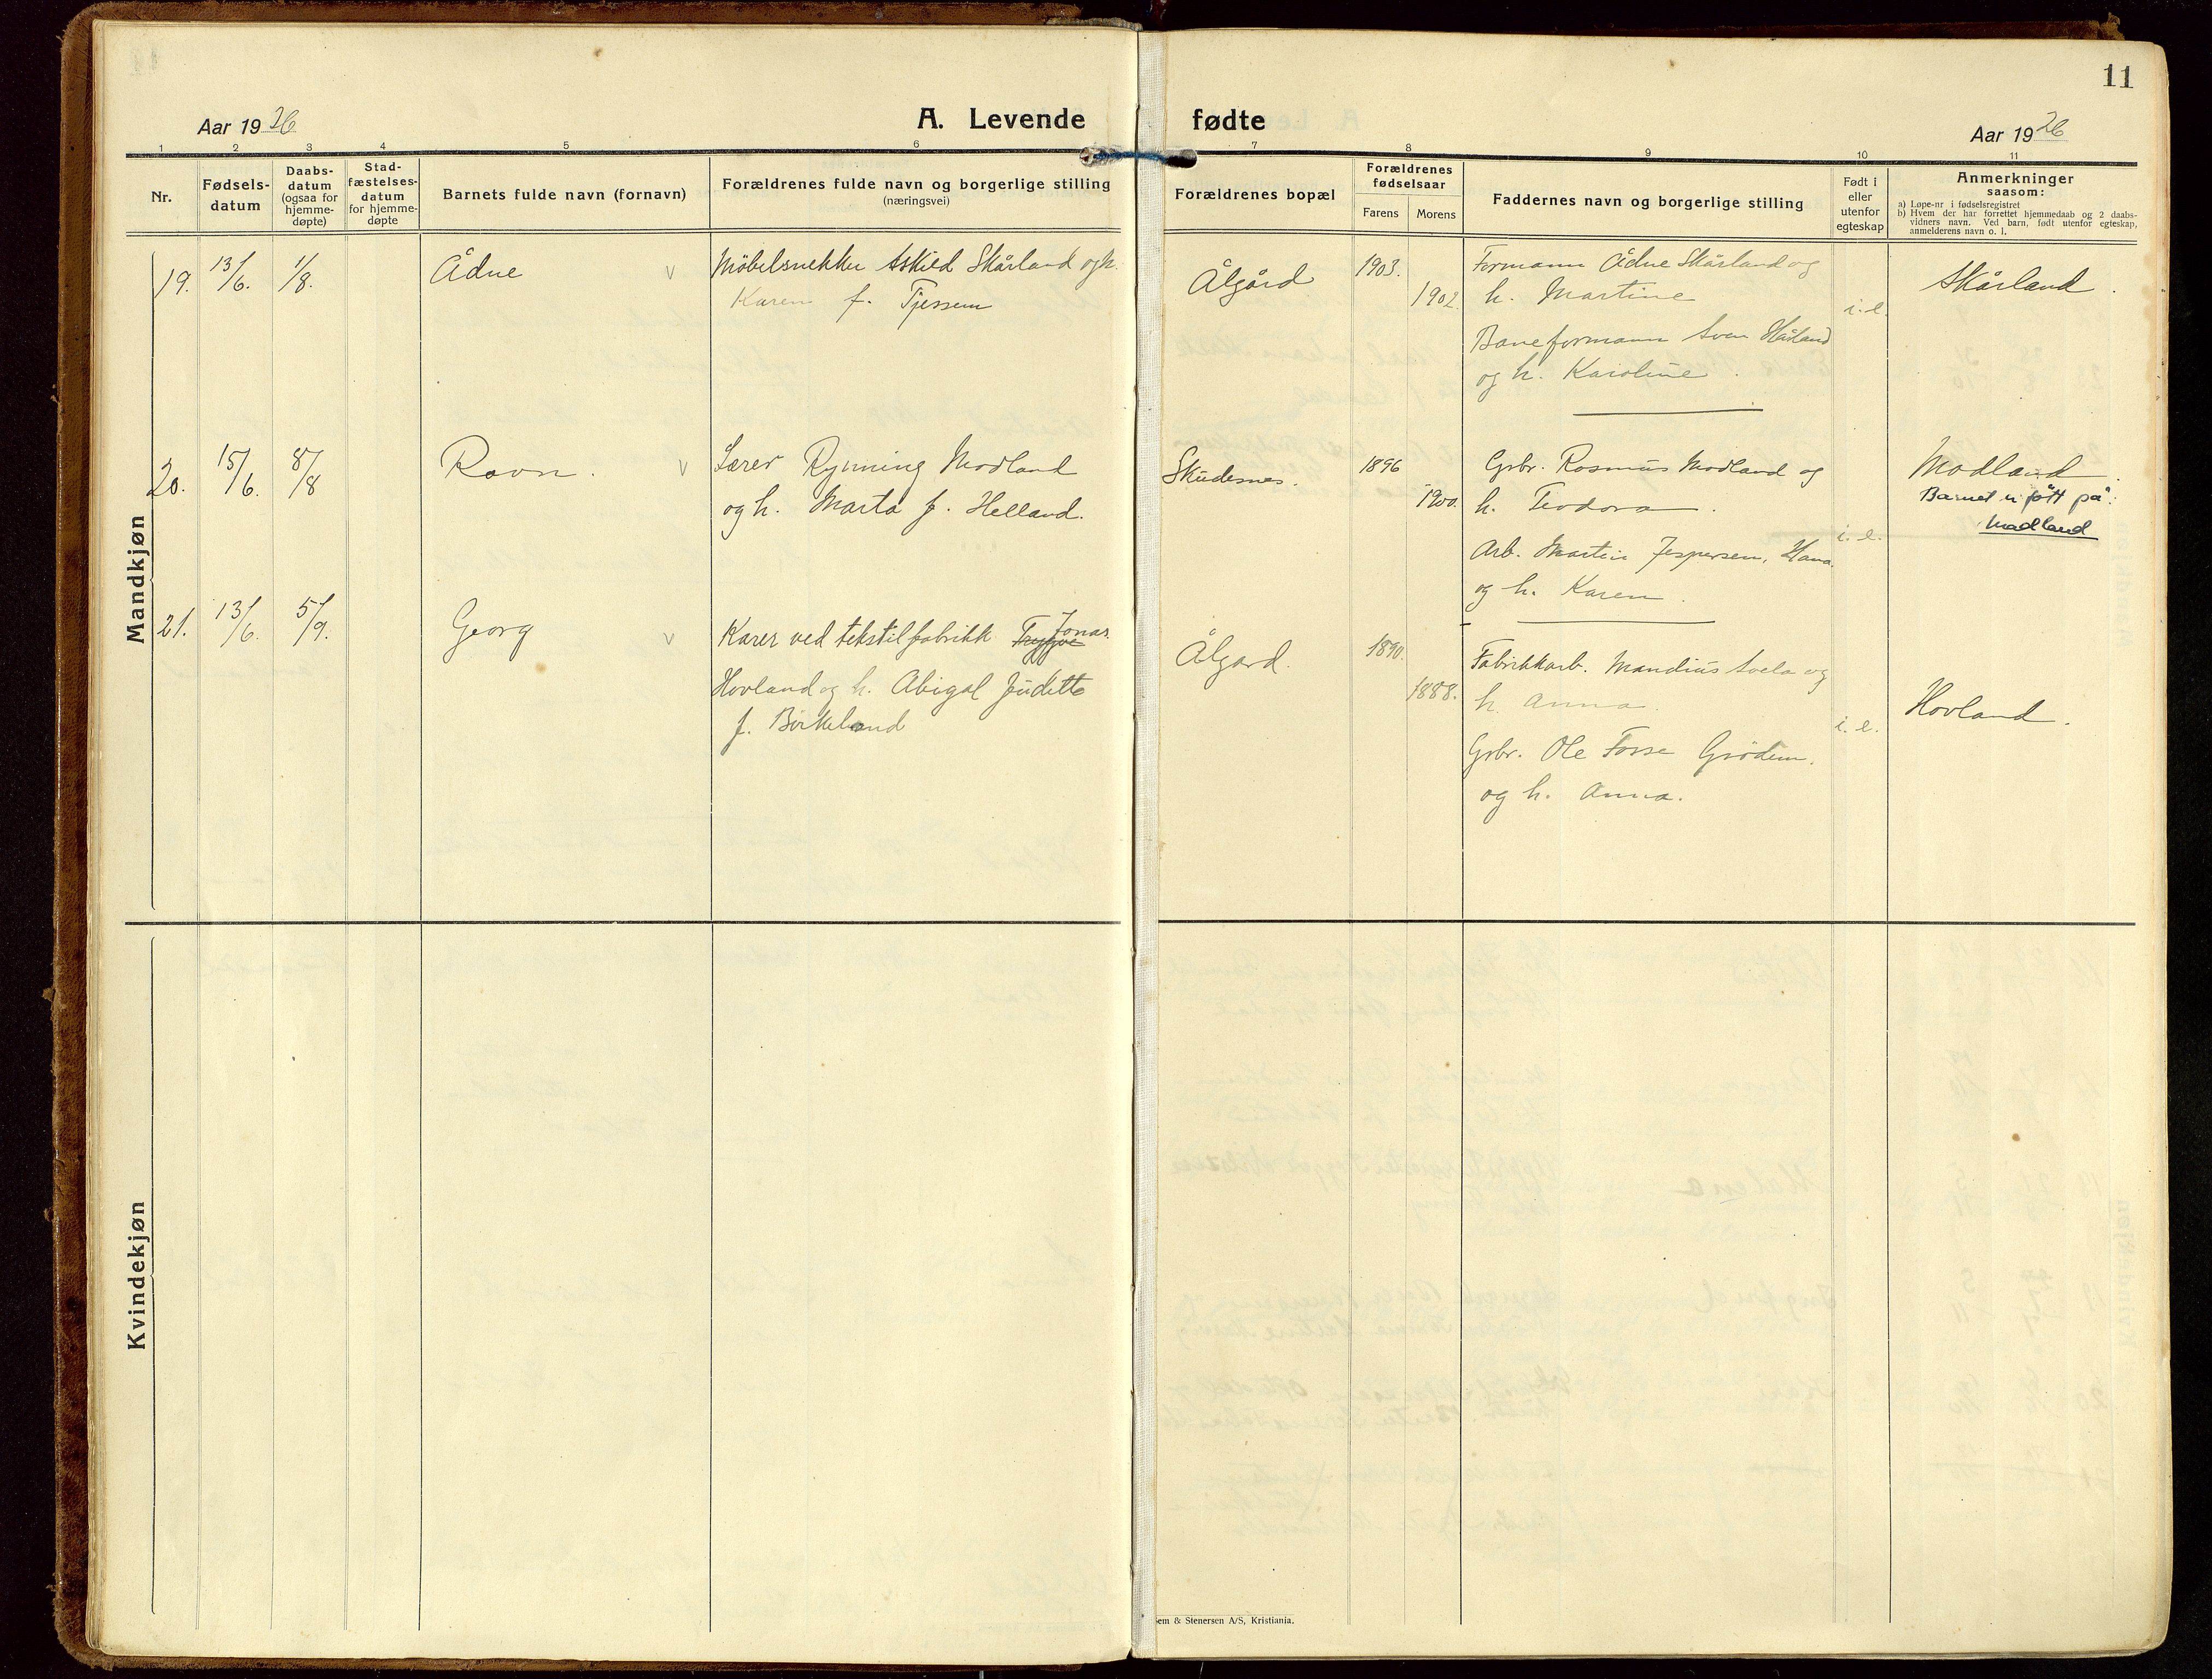 11
Aar 1926
A. Levende
fødte
Aar 1926
1 2 3 4 5 6 7 8 9 10 11
Nr.
Fødsels-
datum
Daabs-
datum
(ogsaa for
hjemme-
døpte)
Stad-
fæstelses-
datum
for hjemme-
døpte
Barnets fulde navn (fornavn)
Forældrenes fulde navn og borgerlige stilling
(næringsvei)
Forældrenes bopæl
Forældrenes
fødselsaar
Farens Morens
Faddernes navn og borgerlige stilling
Født i
eller
utenfor
egteskap
Anmerkninger
saasom:
a) Løpe-nr i fødselsregistret
b) Hvem der har forrettet hjemmedaab og 2 daabs-
vidners navn. Ved barn, født utenfor egteskap,
anmelderens navn o. l.
Mandkjøn
19. 13/6. 1/8. Ådne v
Møbelsnekker Askild Skårland og h.
Karen f. Tjessem
Ålgård
1903.
1902.
Formann Ådne Skårland og
h. Martine
Baneformann Sven Håland
og h. Karoline.
i. e.
Skårland.
20. 15/6. 8/8 Ravn. v
Lærer Rynning Modland
og h. Marta f. Helland.
Skudesnes.
1896
1900.
Grbr. Rasmus Modland og
h. Teodora.
Arb. Martin Jespersen, Hana.
og h. Karen.
i. e.
Modland
Barnet er født på:
Madland
21. 13/6. 5/9. Georg v
Karer ved tekstilfabrikk Tryggve Jonas
Hovland og h. Abigal Juditte
f. Birkeland
Ålgard.
1890.
1888.
Fabrikkarb. Mandius Svela og
h. Anna.
Grbr. Ole Fosse Grødem.
og h. Anna.
i. e.
Hovland.
Kvindekjøn
em & Stenersen A/S, Kristiania.